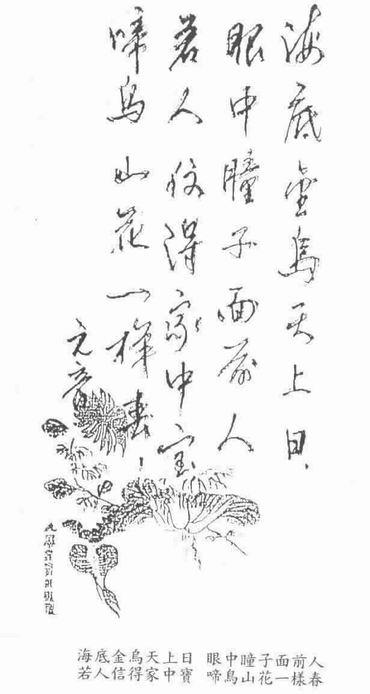 海底金烏天上日
眼中瞳子面前人
若人信得家中宝
啼鳥山花一样春
元音
海底金烏天上日 眼中瞳子面前人
若人信得家中寶 啼鳥山花一樣春